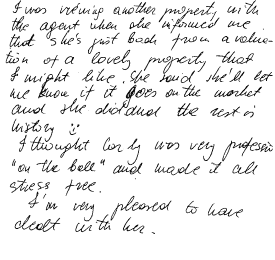 I was viewing another property with
the agent when she informed me
that she's just back from a valua-
tion of a lovely property that
I might like. She said she'll let
me know if it goes on the market
and she did and the rest is
history :)
I thought was very professio
"on the ball" and made it all
stress free.
I'm very pleased to have
dealt with her.